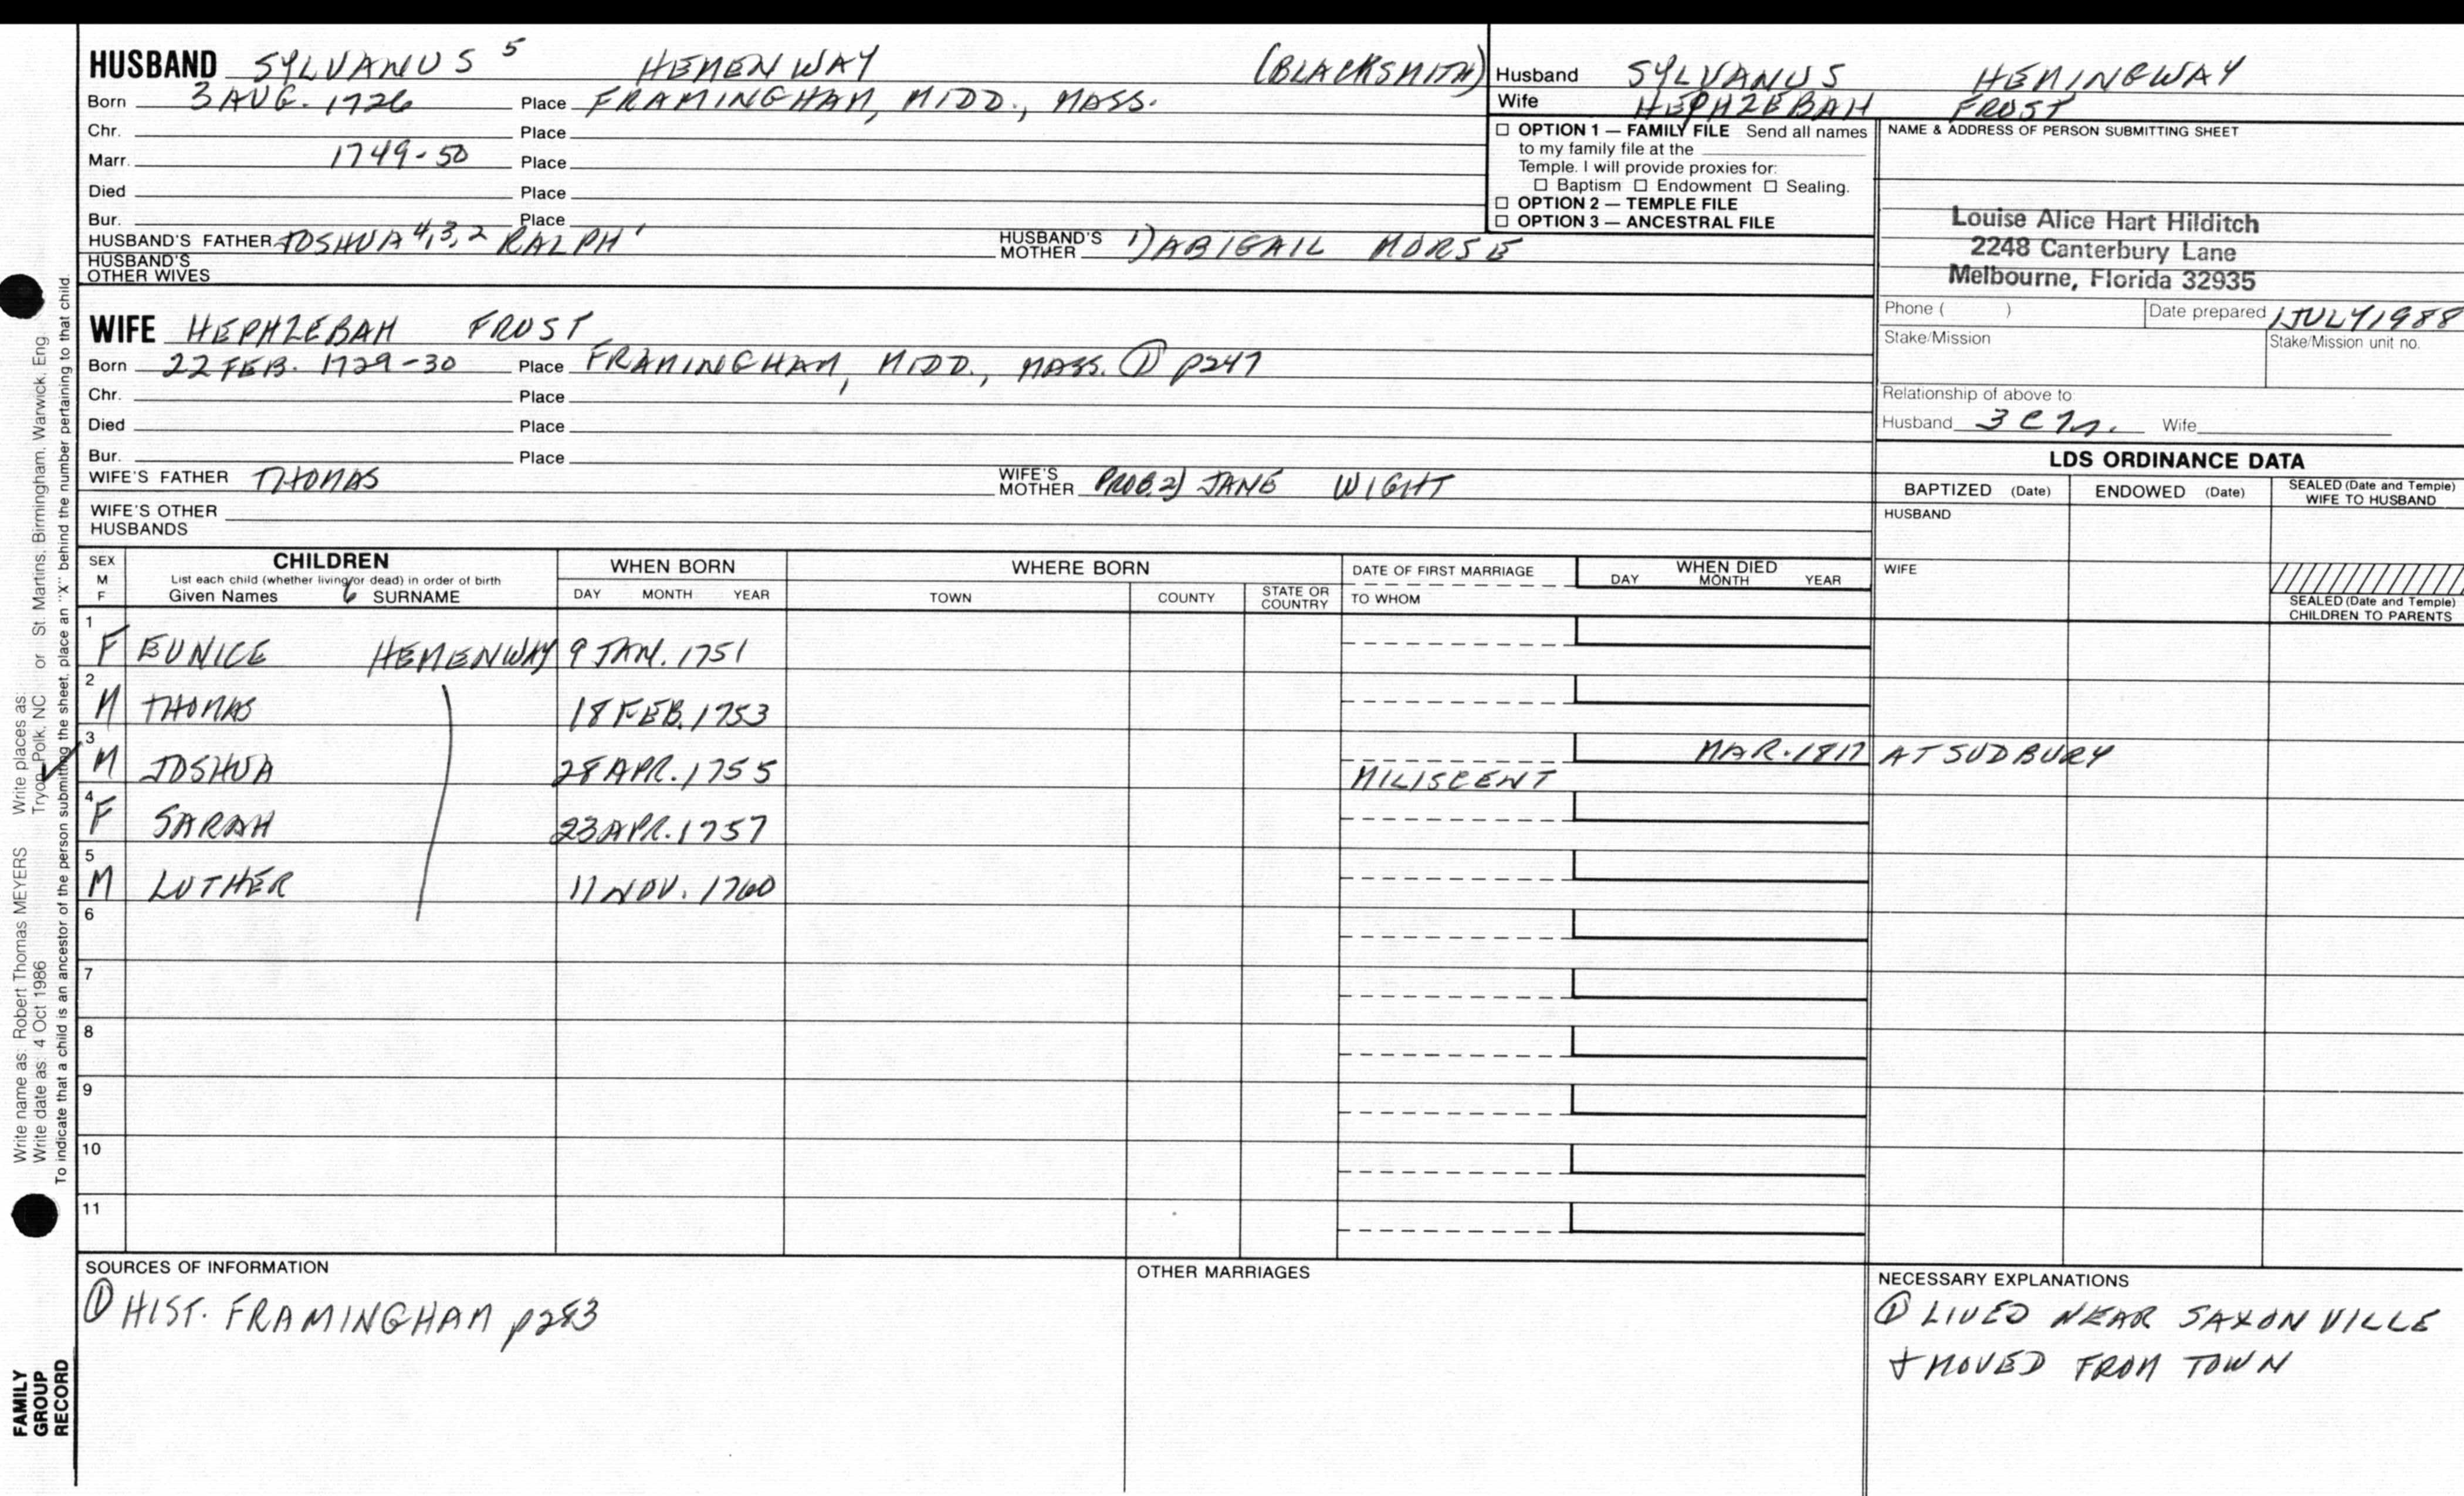 HUSBAND SYLVANUS 5 HEMENWAY (BLACKSMITH)
Born 3 AUG. 1726 Place FRAMINGHAM, MIDD., MASS.
Chr. Place
Marr. 1749-50 Place
Died Place
Bur. Place
HUSBAND'S FATHER JOSHUA 4,3,2 RALPH 1 HUSBAND'S MOTHER 1) ABIGAIL MORSE
HUSBAND'S OTHER WIVES
Husband SYLVANUS HEMINGWAY
Wife HEPHZEBAH FROST
☐ OPTION 1 — FAMILY FILE Send all names
to my family file at the
Temple. I will provide proxies for:
☐ Baptism ☐ Endowment ☐ Sealing.
☐ OPTION 2 — TEMPLE FILE
☐ OPTION 3 — ANCESTRAL FILE
NAME & ADDRESS OF PERSON SUBMITTING SHEET
Louise Alice Hart Hilditch
2248 Canterbury Lane
Melbourne, Florida 32935
Phone ( ) Date prepared 1 JULY 1988
Stake/Mission Stake/Mission unit no.
Relationship of above to:
Husband Wife
WIFE HEPHZEBAH FROST
Born 22 FEB. 1729-30 Place FRAMINGHAM, MIDD., MASS. ① p247
Chr. Place
Died Place
Bur. Place
WIFE'S FATHER THOMAS WIFE'S MOTHER PROB. 2) JANE WIGHT
WIFE'S OTHER HUSBANDS
LDS ORDINANCE DATA
BAPTIZED (Date) ENDOWED (Date) SEALED (Date and Temple) WIFE TO HUSBAND
HUSBAND
WIFE
SEALED (Date and Temple) CHILDREN TO PARENTS
SEX M F
CHILDREN
List each child (whether living or dead) in order of birth
Given Names 6 SURNAME
WHEN BORN
DAY MONTH YEAR
WHERE BORN
TOWN COUNTY STATE OR COUNTRY
DATE OF FIRST MARRIAGE
TO WHOM
WHEN DIED
DAY MONTH YEAR
1 F EUNICE HEMENWAY 9 JAN. 1751
2 M THOMAS 18 FEB. 1753
3 M JOSHUA 28 APR. 1755 MILISCENT MAR. 1817 AT SUDBURY
4 F SARAH 23 APR. 1757
5 M LUTHER 11 NOV. 1760
6
7
8
9
10
11
SOURCES OF INFORMATION
① HIST. FRAMINGHAM p283
OTHER MARRIAGES
NECESSARY EXPLANATIONS
① LIVED NEAR SAXONVILLE
+ MOVED FROM TOWN
Write name as: Robert Thomas MEYERS Write places as:
Write date as: 4 Oct 1986 Tryon, Polk, NC or St. Martins, Birmingham, Warwick, Eng.
To indicate that a child is an ancestor of the person submitting the sheet, place an "X" behind the number pertaining to that child.
FAMILY
GROUP
RECORD